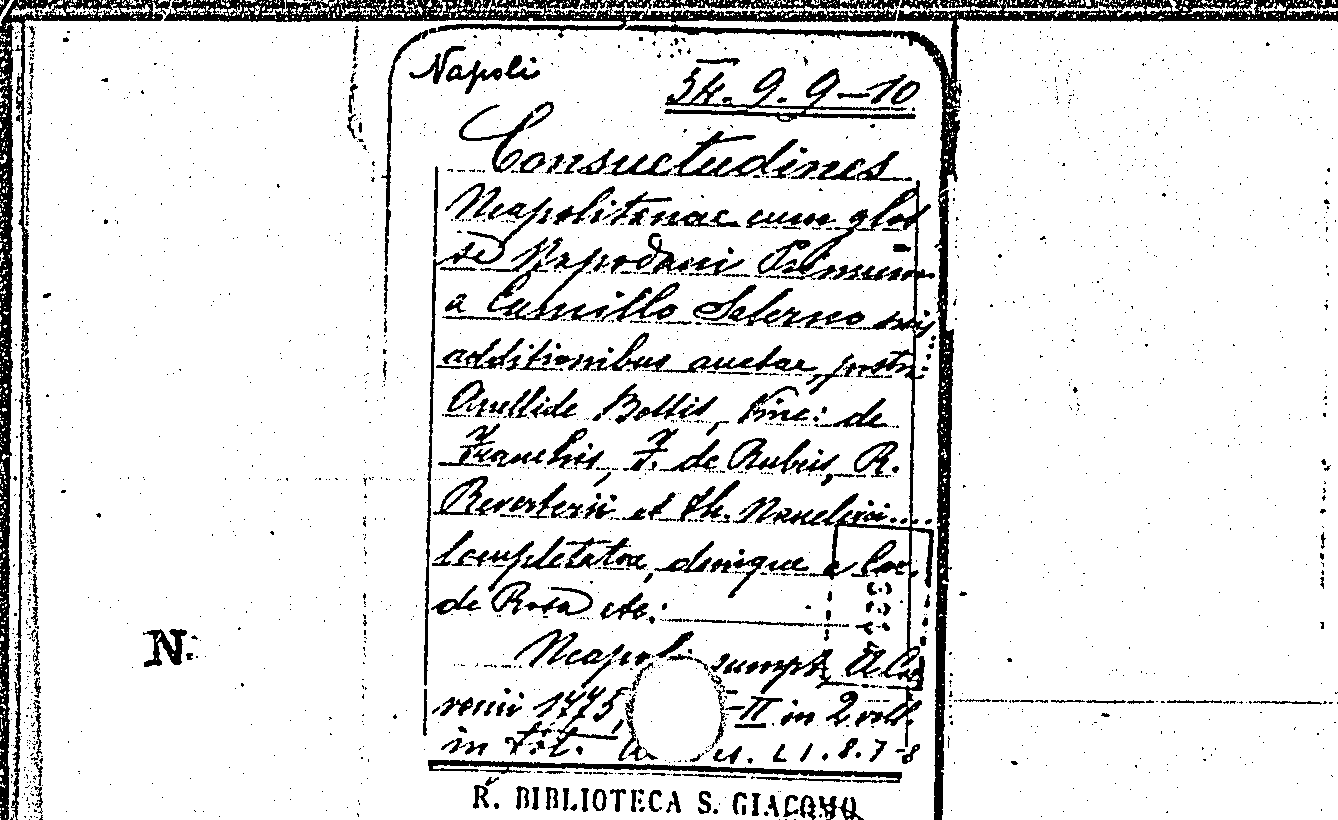 Napoli
54. 9. 9-10
Consuetudines
Neapolitanae cum glos
se Napodani Primum
a Camillo Salerno
additionibus auctae, postr:
Anellide Bottis, Vinc: de
Franchis, F. de Rubeis, R.
Reverterii et Th. Naucleri....
Completatae, denique a Car.
de Rosa etc:
Neapoli sumpt.
venii 1775, -II in 2 voll.
in fol. L I. 8. 7-8
R. BIBLIOTECA S. GIACOMO
N.